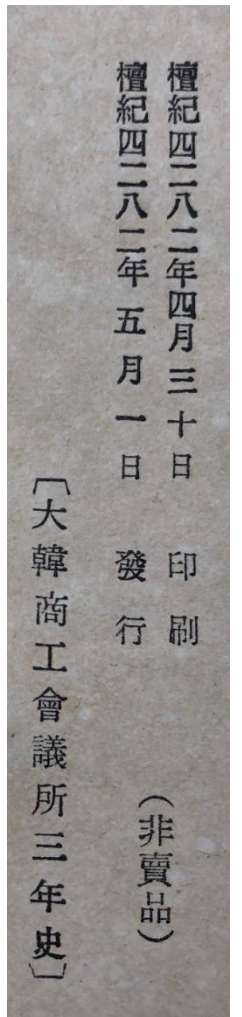 檀紀四二八二年四月三十日 印刷
檀紀四二八二年五月一日 發行
(非賣品)
〔大韓商工會議所三年史〕